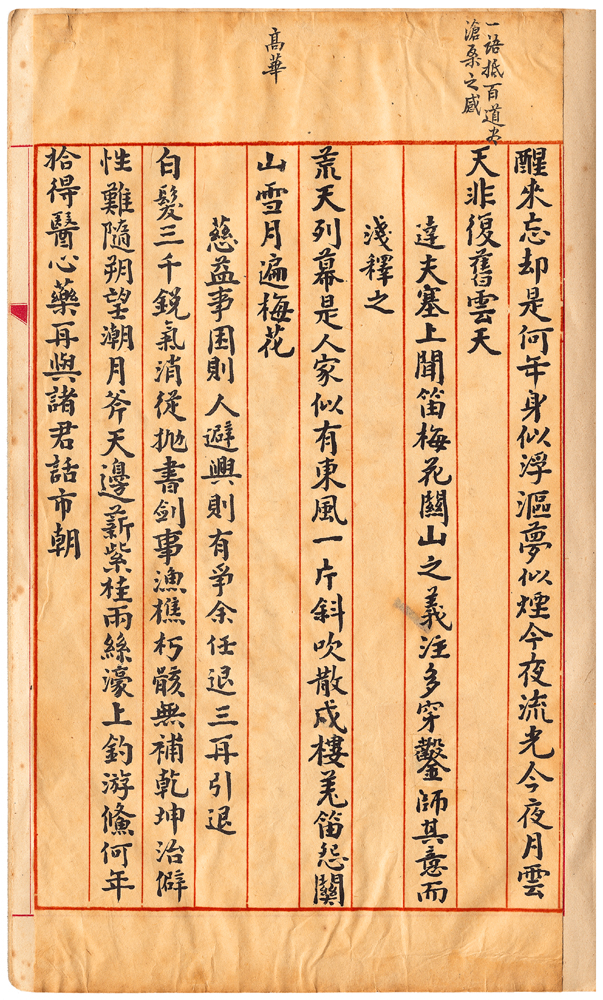 一語抵百道出
滄桑之感
醒來忘却是何年身似浮漚夢似煙今夜流光今夜月雲
天非復舊雲天
達夫塞上聞笛梅花關山之義注多穿鑿師其意而
淺釋之
高華
荒天列幕是人家似有東風一片斜吹散戍樓羌笛怨關
山雪月遍梅花
慈益事困則人避興則有爭余任退三再引退
白髮三千銳氣消從拋書劍事漁樵朽骸無補乾坤治僻
性難隨朔望潮月斧天邊薪紫桂雨絲濠上釣游鯈何年
拾得醫心藥再與諸君話市朝